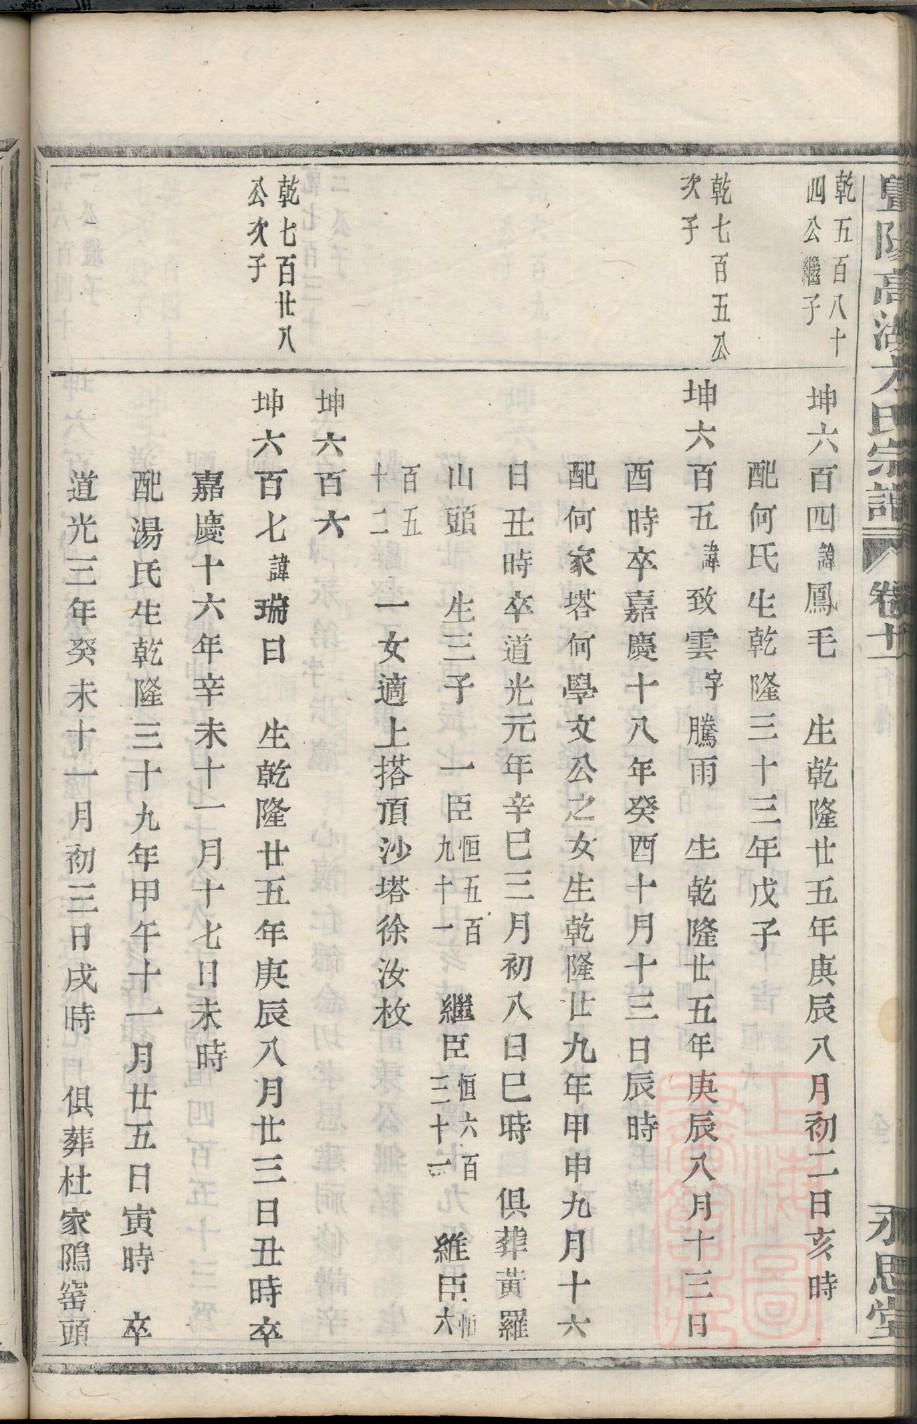 暨陽高湖方氏宗譜 卷十一 永思堂
乾五百八十
四公繼子
坤六百四諱鳳毛 生乾隆廿五年庚辰八月初二日亥時
配何氏生乾隆三十三年戊子
乾七百五公
次子
坤六百五諱致雲字騰雨 生乾隆廿五年庚辰八月十三日
酉時卒嘉慶十八年癸酉十月十三日辰時
配何家塔何學文公之女生乾隆廿九年甲申九月十六
日丑時卒道光元年辛巳三月初八日巳時 俱葬黃羅
山頭 生三子 一臣恒五百九十一 繼臣恒六百三十一 維臣恒六
百五十二 一女適上搭頂沙塔徐汝枚
坤六百六
乾七百廿八
公次子
坤六百七諱瑞日 生乾隆廿五年庚辰八月廿三日丑時卒
嘉慶十六年辛未十一月十七日未時
配湯氏生乾隆三十九年甲午十一月廿五日寅時 卒
道光三年癸未十一月初三日戌時 俱葬杜家隝窑頭